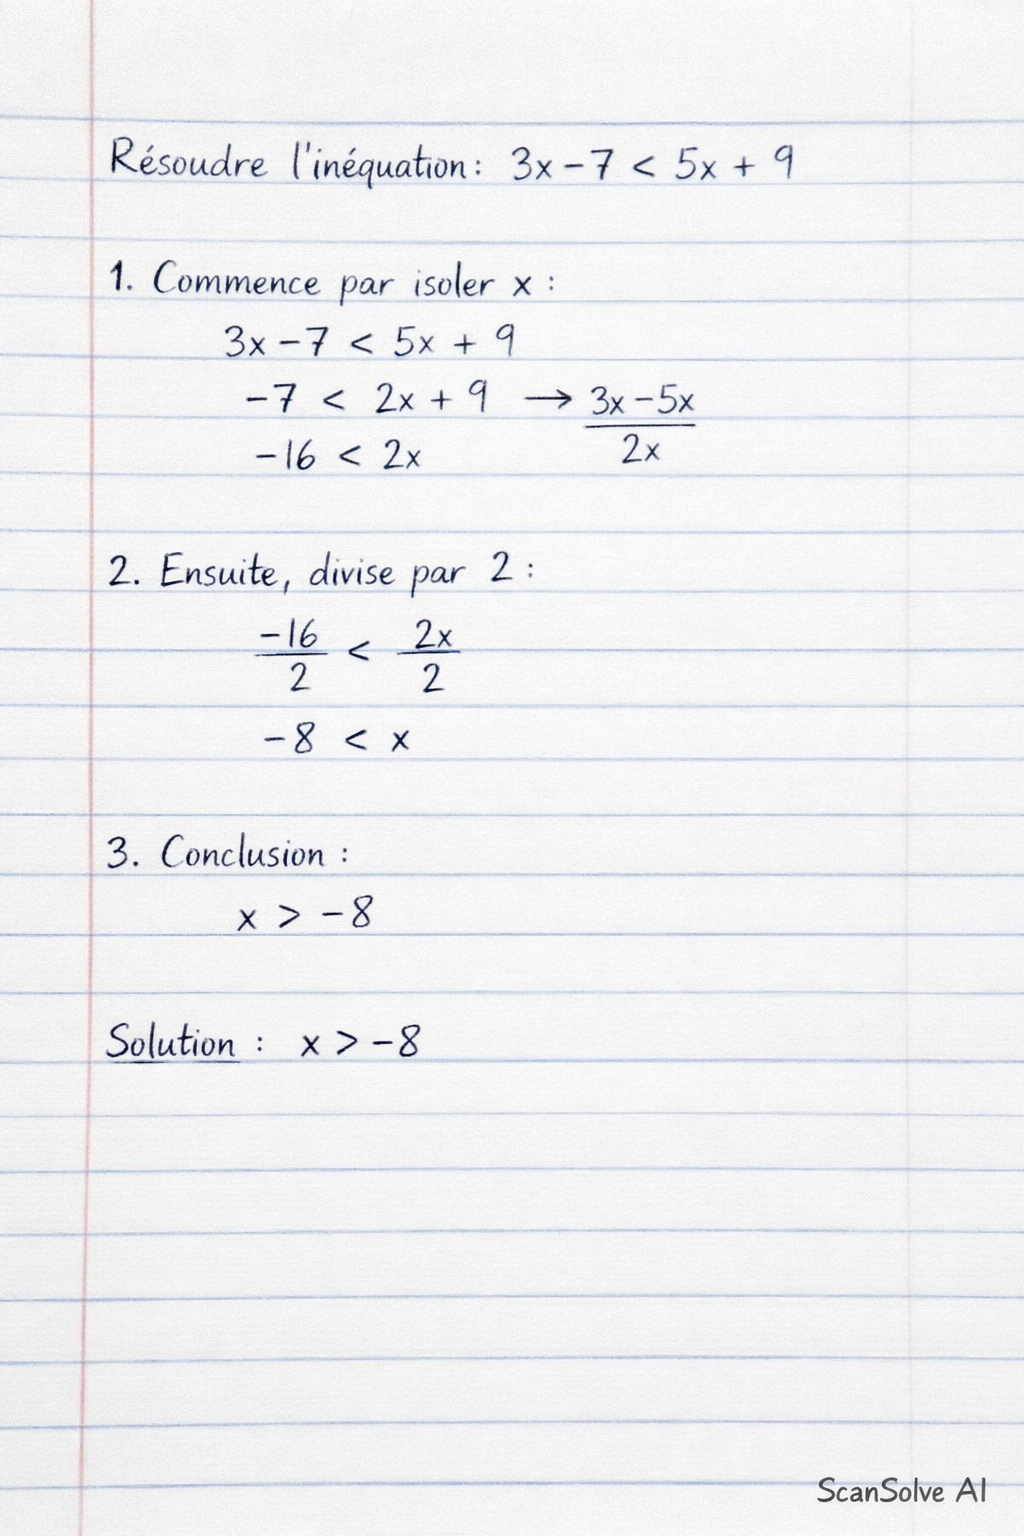 Résoudre l'inéquation: 3x − 7 < 5x + 9
1. Commence par isoler x :
3x − 7 < 5x + 9
−7 < 2x + 9 → 3x − 5x
2x
−16 < 2x
2. Ensuite, divise par 2 :
−16 < 2x
2 2
−8 < x
3. Conclusion :
x > −8
Solution : x > −8
ScanSolve AI